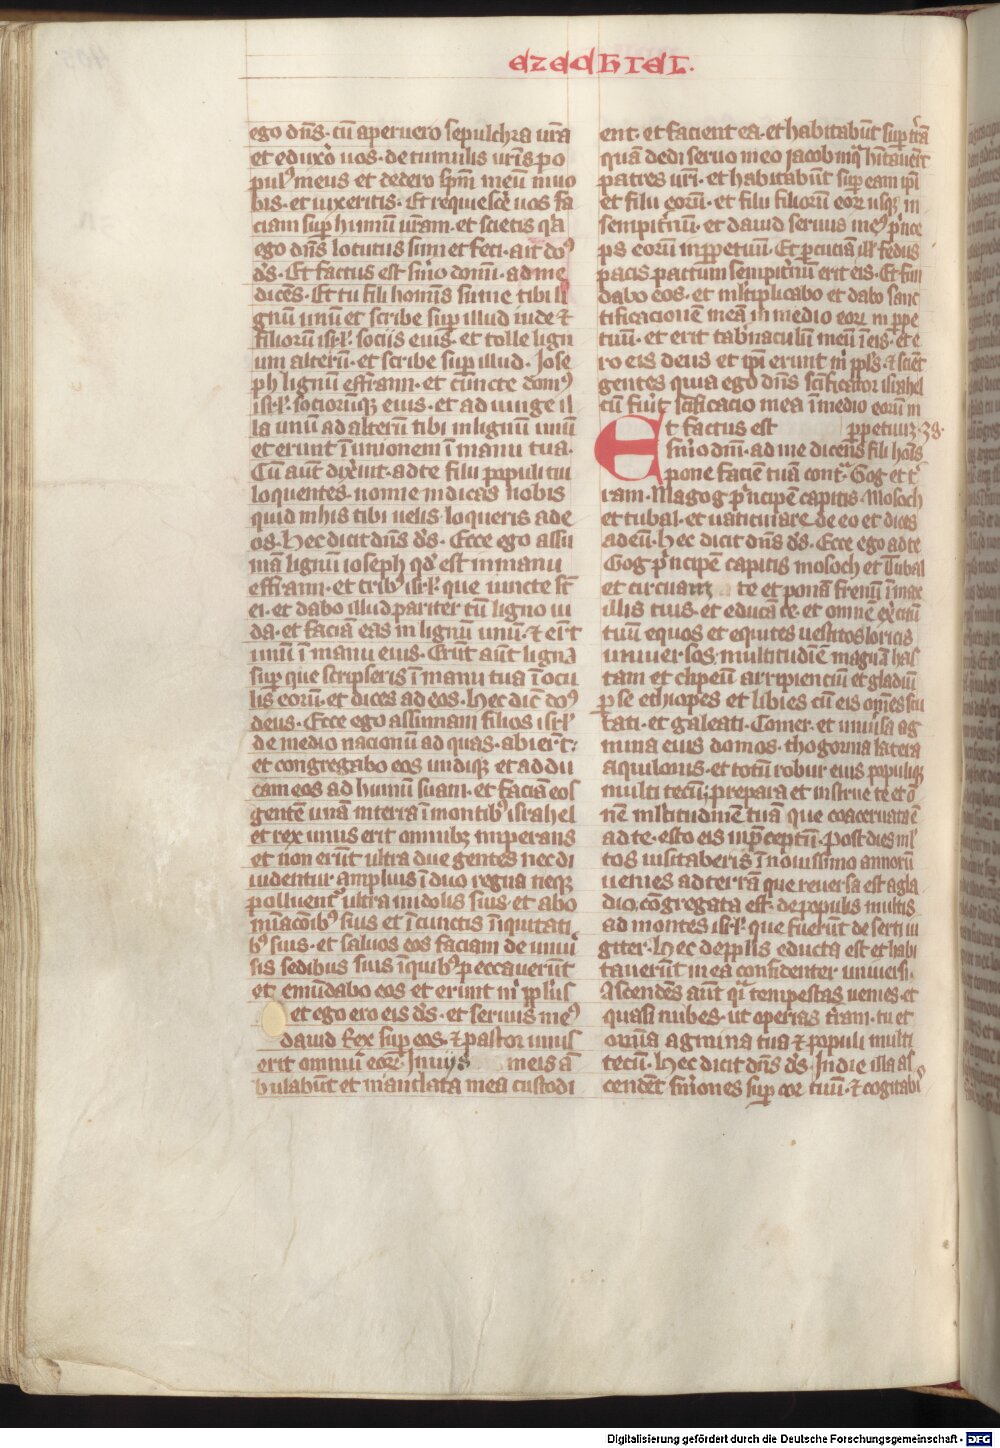 ezechiel.
ego dn̄s. cū aperuero sepulchra ur̄a
et eduxo᷑ uos. de tumulis ur̄is po
pulꝰ meus et dedero sp̄m meū in uo
bis. et uixeritis. Et requiesce᷑ uos fa
ciam suꝑ humū ur̄am. et scietis qꝛa
ego dn̄s locutus sum et feci. ait doꝰ
ds̄. Et factus est sm̄o domi. ad me
dicēs. Et tu fili homīs sume tibi li
gnū unū et scribe suꝑ illud iude ⁊
filiorū isrl̄. sociis eius. et tolle lign
um alterū. et scribe suꝑ illud. Jose
ph lignū effraim. et cūncte domꝰ
isrl̄. sociorūqꝫ eius. et ad iunge il
la unū ad alterū tibi in lignū unū
et erunt ī unionem ī manu tua.
Cū aūt dix̄int. ad te filii populi tui
loquentes. nonne indicas nobis
quid in his tibi uelis. loqueris ad e
os. Hec dicit dn̄s ds̄. Ecce ego assu
mā lignū ioseph qd̄ est in manu
effraim. et tribꝰ isrl̄. que iuncte sūt
ei. et dabo illud pariter cū ligno iu
da. et faciā eas in lignū unū. ⁊ er̄t
unū ī manu eius. Erūt aūt ligna
suꝑ que scripseris ī manu tua ī ocu
lis eorū. et dices ad eos. Hec dic̄ doꝰ
deus. Ecce ego assumam filios isrl̄.
de medio nacionū ad quas. abier̄t.
et congregabo eos undiqꝫ et addu
cam eos ad humū suam. et faciā eos
gentē unā in terra ī montibꝰ israhel
et rex unus erit omnibꝫ imperans
et non erūt ultra due gentes nec di
uidentur amplius ī duo regna neqꝫ
polluentꝰ ultra in idolis suis. et abo
mīacōibꝰ suis et ī cunctis īiquitati
bꝰ suis. et saluos eos faciam de uniu᷑
sis sedibus suis īquibꝰ peccauerūt
et emūdabo eos et erunt m̄ ppl̄us
et ego ero eis ds̄. et seruus meꝰ
dauid Rex suꝑ eos. ⁊ pastor unus
erit omniū eorꝫ. In iuijs meis ā
bulabūt et mandata mea custodi
ent. et facient ea. et habitabūt suꝑ tr̄a
quā dedi seruo meo jacob in qꝰ hītauer̄t
patres ur̄i. et habitabūt suꝑ eam ipi
et filii eorū. et filii filiorū eorꝫ usqꝫ in
sempit᷑nū. et dauid seruus meꝰ pͥnce
ps eorū in ppetuū. Et percuciā illꝭ fedus
pacis pactum sempit᷑nū erit eis. Et fun
dabo eos. et ml̄tiplicabo et dabo sanc
tificacionē meā in medio eorꝫ in ppe
tuū. et erit tab᷑naculū meū ī eis. et e
ro eis deus et ipi erunt m̄ ppl̄s. ⁊ sciēt
gentes quia ego dn̄s sc̄ificator israhel
cū fuīt sc̄ificacio mea ī medio eorū in
Et factus est ꝑpetuuꝫ. 38.
sm̄o dn̄i. ad me dicens fili hois
pone faciē tuā cont͛. Gog et t᷑
ram. Magog pͥncipē capitis. Mosoch
et tubal. et uaticinare de eo et dices
ad eū. Hec dicit dn̄s ds̄. Ecce ego ad te
Gog pͥncipē capitis mosoch et Tubal
et circuanꝫ te et ponā frenū ī max
illis tuis. et educā te. et omnē ex᷑citū
tuū equos et equites uestitos loricis
uniuersos. multitudīē magnā has
tam et clipeū arripienciū et gladiū
ꝑ se ethiopes et libies cū eis om̄es scu
tati. et galeati. Gomer. et uniu᷑sa ag
mina eius domos. thogorma latera
aquilonis. et totū robur eius populiqꝫ
multi tecū. prepara et instrue te et o᷑
nem ml̄titudinē tuā que coaceruata ē
ad te. esto eis in p̄ceptū. Post dies ml̄
tos uisitaberis ī nouissimo annorū
uenies ad terrā que reuersa est a gla
dio. cōgregata est. de populis multis
ad montes isrl̄. que fuerūt deserti iu
giter. Hec de ppl̄is educta est et habi
tauerūt in ea confidenter uniuersi.
Ascendēs aūt qͣ tempestas uenies. et
quasi nubes. ut operias tr̄am. tu et
omnia agmina tua ⁊ populi multi
tecū. Hec dicit dn̄s ds̄. In die illa as
cendēt sm̄ones suꝑ cor tuū. ⁊ cogitabꝭ
Digitalisierung gefördert durch die Deutsche Forschungsgemeinschaft - DFG